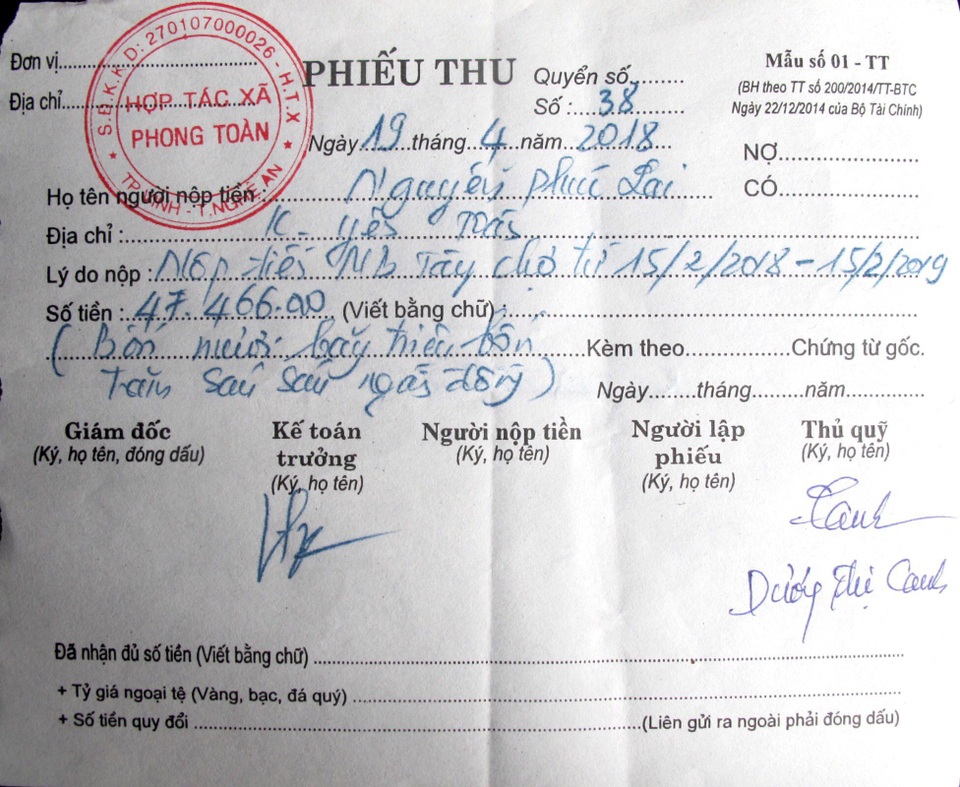 Đơn vị
Địa chỉ
S.Đ.K.K.D: 270107000026 - H.T.X
HỢP TÁC XÃ
PHONG TOÀN
TP.VINH - T.NGHỆ AN
PHIẾU THU
Quyển số
Số : 38
Mẫu số 01 - TT
(BH theo TT số 200/2014/TT-BTC
Ngày 22/12/2014 của Bộ Tài Chính)
Ngày 19 tháng 4 năm 2018
NỢ
CÓ
Họ tên người nộp tiền : Nguyễn Phúc Lai
Địa chỉ : K yên Toàn
Lý do nộp : Nộp tiền MB Tây chợ từ 15/2/2018 - 15/2/2019
Số tiền : 47.466.00 (Viết bằng chữ) :
( Bốn mươi bảy triệu bốn
Kèm theo Chứng từ gốc.
trăm sáu sáu ngàn đồng )
Ngày tháng năm
Giám đốc
(Ký, họ tên, đóng dấu)
Kế toán
trưởng
(Ký, họ tên)
Người nộp tiền
(Ký, họ tên)
Người lập
phiếu
(Ký, họ tên)
Thủ quỹ
(Ký, họ tên)
Dương Thị Canh
Đã nhận đủ số tiền (Viết bằng chữ)
+ Tỷ giá ngoại tệ (Vàng, bạc, đá quý)
+ Số tiền quy đổi (Liên gửi ra ngoài phải đóng dấu)